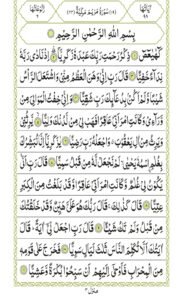 اٰيَاتُهَا ٩٨ (١٩) سُوْرَةُ مَرْيَمَ مَكِّيَّةٌ (٤٤) رُكُوْعَاتُهَا ٦
بِسْمِ اللّٰهِ الرَّحْمٰنِ الرَّحِيْمِ
كٓهٰيٰعٓصٓ ذِكْرُ رَحْمَتِ رَبِّكَ عَبْدَهٗ زَكَرِيَّا اِذْ نَادٰى رَبَّهٗ
نِدَآءً خَفِيًّا قَالَ رَبِّ اِنِّيْ وَهَنَ الْعَظْمُ مِنِّيْ وَاشْتَعَلَ الرَّاْسُ
شَيْبًا وَّلَمْ اَكُنْۢ بِدُعَآئِكَ رَبِّ شَقِيًّا وَاِنِّيْ خِفْتُ الْمَوَالِيَ مِنْ
وَّرَآءِيْ وَكَانَتِ امْرَاَتِيْ عَاقِرًا فَهَبْ لِيْ مِنْ لَّدُنْكَ وَلِيًّا يَّرِثُنِيْ
وَيَرِثُ مِنْ اٰلِ يَعْقُوْبَ وَاجْعَلْهُ رَبِّ رَضِيًّا يٰزَكَرِيَّآ اِنَّا نُبَشِّرُكَ
بِغُلٰمِ ۨاسْمُهٗ يَحْيٰى لَمْ نَجْعَلْ لَّهٗ مِنْ قَبْلُ سَمِيًّا قَالَ رَبِّ اَنّٰى
يَكُوْنُ لِيْ غُلٰمٌ وَّكَانَتِ امْرَاَتِيْ عَاقِرًا وَّقَدْ بَلَغْتُ مِنَ الْكِبَرِ
عِتِيًّا قَالَ كَذٰلِكَ قَالَ رَبُّكَ هُوَ عَلَيَّ هَيِّنٌ وَّقَدْ خَلَقْتُكَ
مِنْ قَبْلُ وَلَمْ تَكُ شَيْئًا قَالَ رَبِّ اجْعَلْ لِّيْٓ اٰيَةً قَالَ
اٰيَتُكَ اَلَّا تُكَلِّمَ النَّاسَ ثَلٰثَ لَيَالٍ سَوِيًّا فَخَرَجَ عَلٰى قَوْمِهٖ
مِنَ الْمِحْرَابِ فَاَوْحٰٓى اِلَيْهِمْ اَنْ سَبِّحُوْا بُكْرَةً وَّعَشِيًّا
منزل ٤